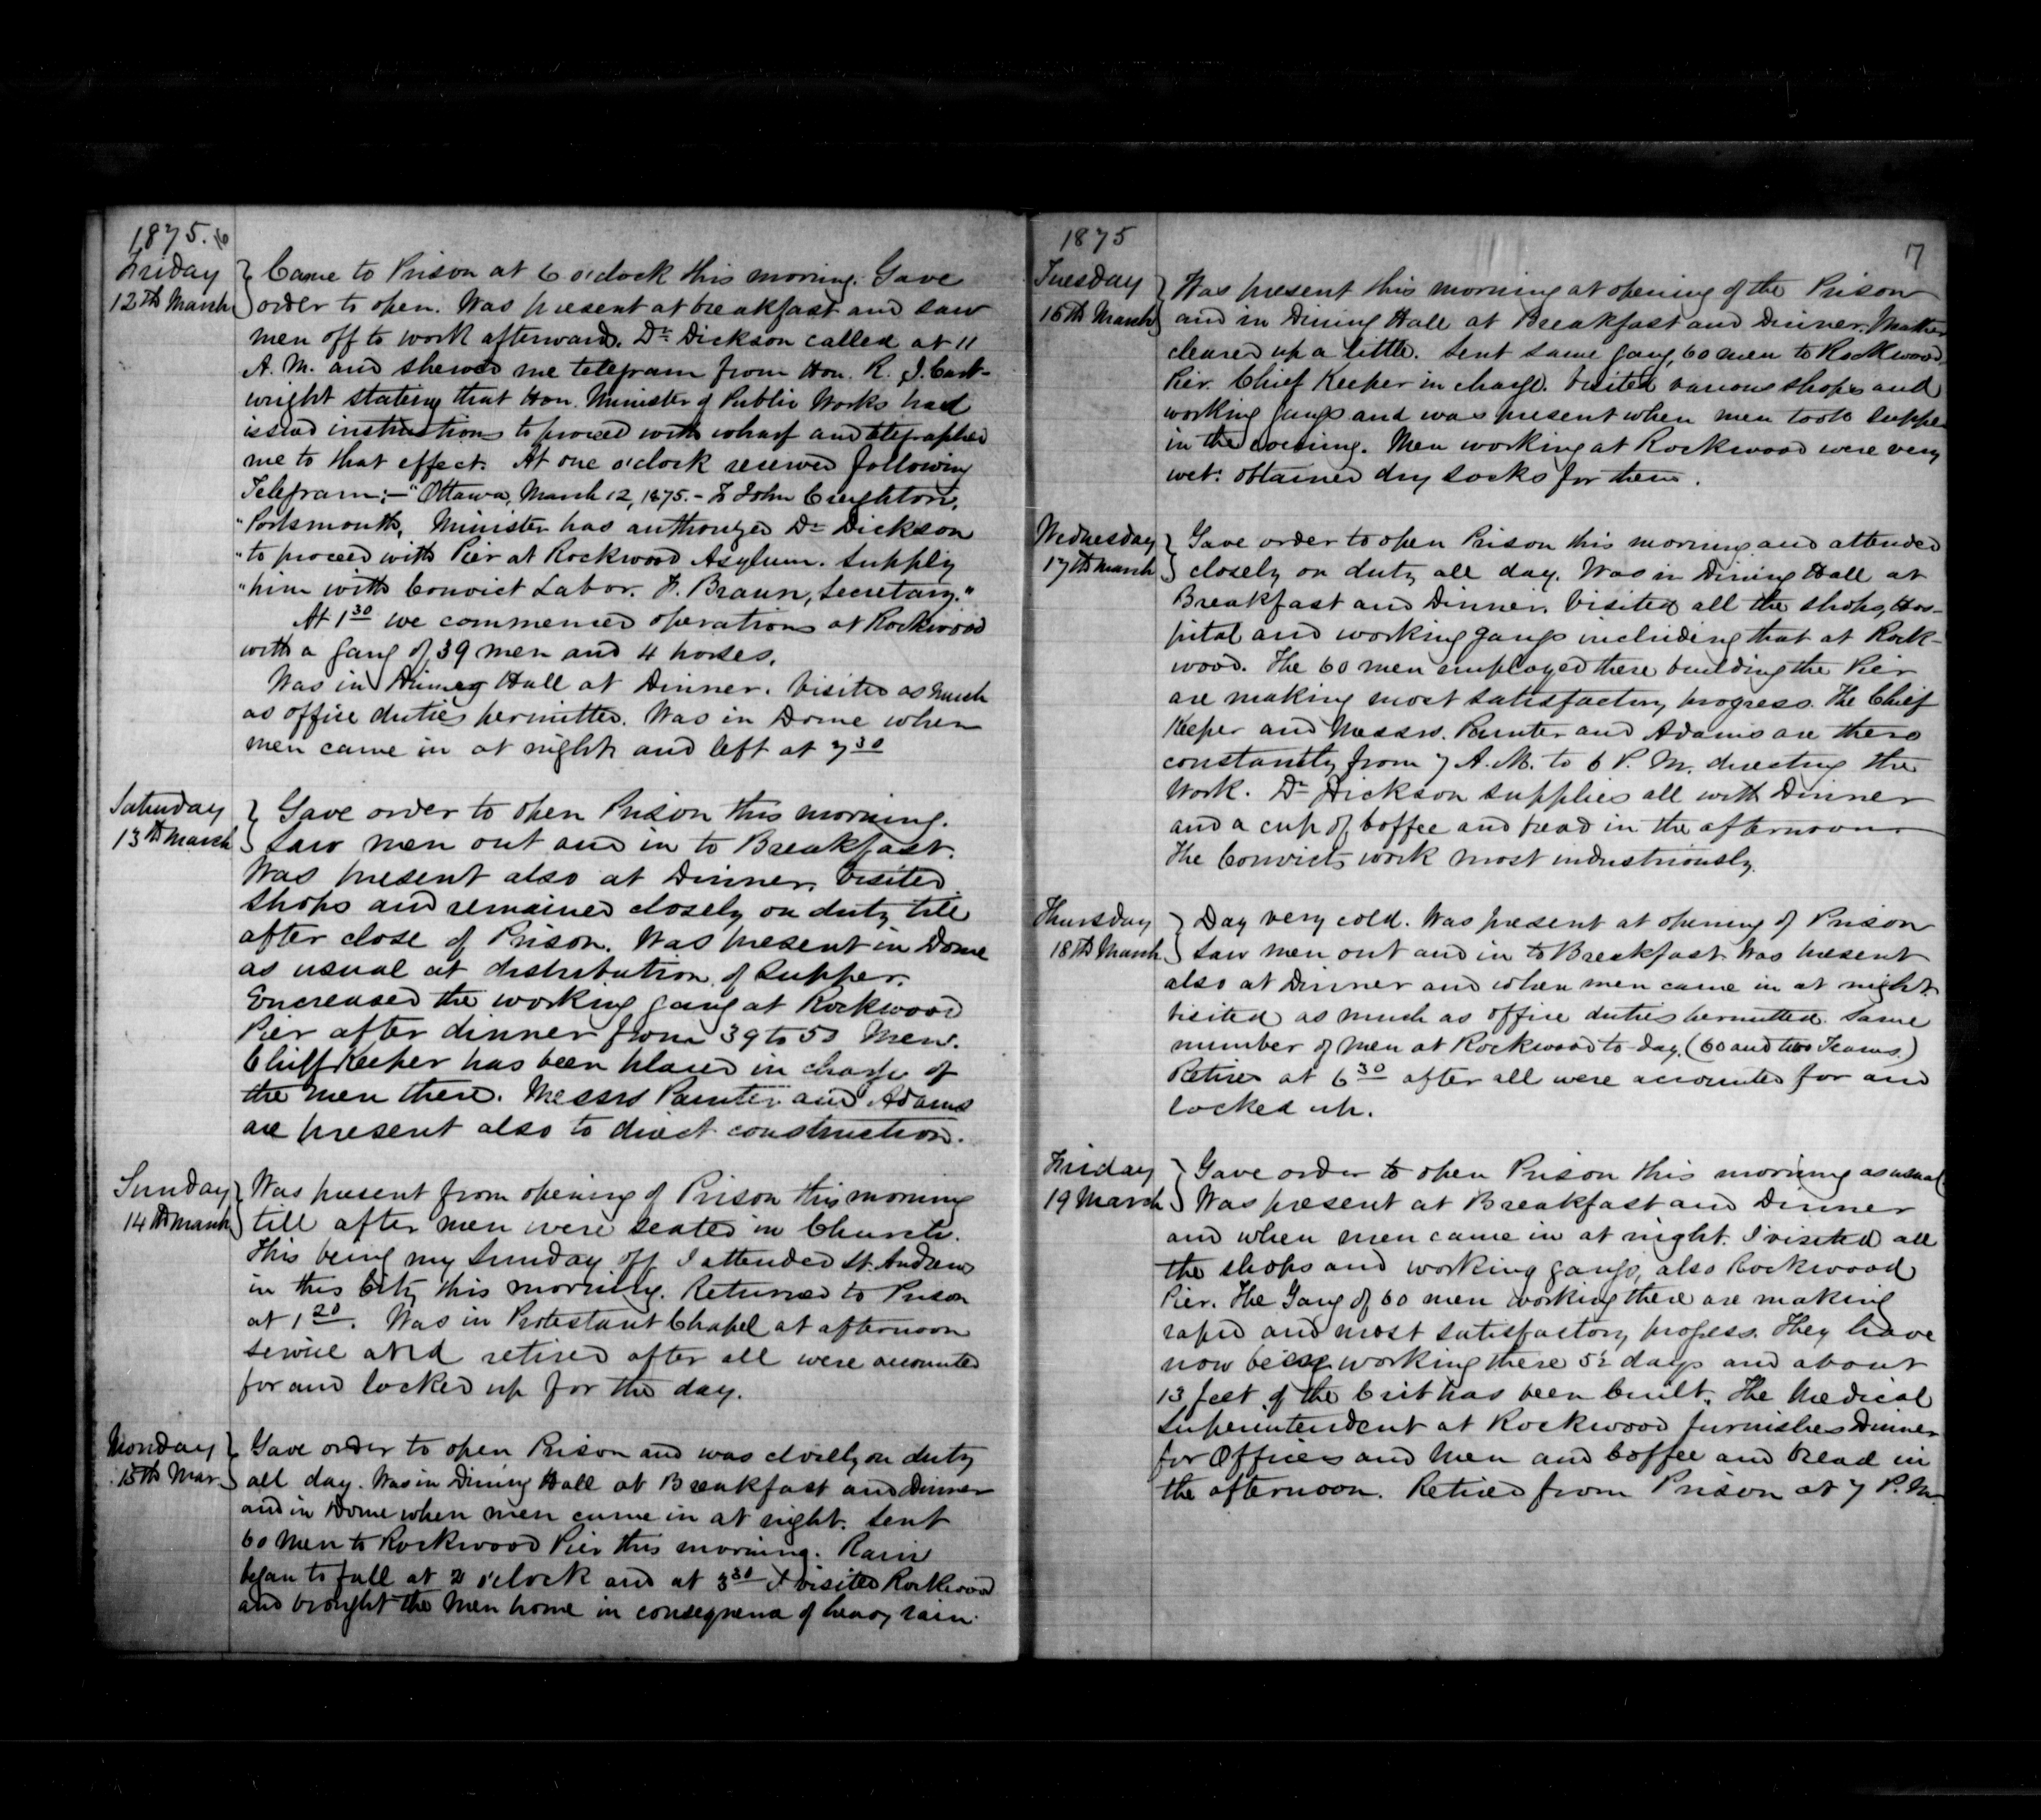 1875. 16
Friday
12th March
Came to Prison at 6 o'clock this morning. Gave
order to open. Was present at breakfast and saw
men off to work afterward. Dr Dickson called at 11
A. M. and shewed me telegram from Hon. R. J. Cart-
wright stating that Hon. Minister of Public Works had
issued instructions to proceed with wharf and telegraphed
me to that effect. At one o'clock received following
Telegram:— "Ottawa, March 12, 1875. – To John Creighton,
"Portsmouth, Minister has authorized Dr Dickson
"to proceed with Pier at Rockwood Asylum. Supply
"him with Convict Labor. F. Braun, Secretary."
At 1 30 we commenced operations at Rockwood
with a gang of 39 men and 4 horses.
Was in Dining Hall at Dinner. Visited as much
as office duties permitted. Was in Dome when
men came in at night and left at 7 30
Saturday
13th March
Gave order to open Prison this morning.
Saw men out and in to Breakfast.
Was present also at Dinner. Visited
Shops and remained closely on duty till
after close of Prison. Was present in Dome
as usual at distribution of Supper.
Encreased the working gang at Rockwood
Pier after dinner from 39 to 50 Men.
Chieff Keeper has been placed in charge of
the men there. Messrs Painter and Adams
are present also to direct construction.
Sunday
14th March
Was present from opening of Prison this morning
till after men were seated in Church.
This being my Sunday off I attended St. Andrews
in this City this morning. Returned to Prison
at 1 20. Was in Protestant Chapel at afternoon
service and retired after all were accounted
for and locked up for the day.
Monday
15th Mar.
Gave order to open Prison and was closely on duty
all day. Was in Dining Hall at Breakfast and Dinner
and in Dome when men came in at night. Sent
60 Men to Rockwood Pier this morning. Rain
began to fall at 2 o'clock and at 3 30 I visited Rockwood
and brought the Men home in consequence of heavy rain.
1875
17
Tuesday
16th March
Was present this morning at opening of the Prison
and in Dining Hall at Breakfast and Dinner. Weather
cleared up a little. Sent same gang, 60 men to Rockwood
Pier. Chief Keeper in charge. Visited various shops and
working gangs and was present when men took supper
in the evening. Men working at Rockwood were very
wet: obtained dry socks for them.
Wednesday
17th March
Gave order to open Prison this morning and attended
closely on duty all day. Was in Dining Hall at
Breakfast and Dinner. Visited all the shops, Hos-
pital and working gangs including that at Rock-
wood. The 60 men employed there building the Pier
are making most satisfactory progress. The Chief
Keeper and Messrs. Painter and Adams are there
constantly from 7 A. M. to 6 P. M. directing the
Work. Dr Dickson supplies all with Dinner
and a cup of Coffee and bread in the afternoon.
The Convicts work most industriously.
Thursday
18th March
Day very cold. Was present at opening of Prison
Saw men out and in to Breakfast. Was present
also at Dinner and when men came in at night.
Visited as much as office duties permitted. Same
number of men at Rockwood to-day. (60 and two Teams.)
Retired at 6 30 after all were accounted for and
locked up.
Friday
19 March
Gave order to open Prison this morning as usual.
Was present at Breakfast and Dinner
and when men came in at night. I visited all
the shops and working gangs, also Rockwood
Pier. The Gang of 60 men working there are making
rapid and most satisfactory progess. They have
now being working there 5½ days and about
13 feet of the Crib has been built. The Medical
Superintendent at Rockwood furnishes Dinner
for Officers and Men and Coffee and Bread in
the afternoon. Retired from Prison at 7 P. M.